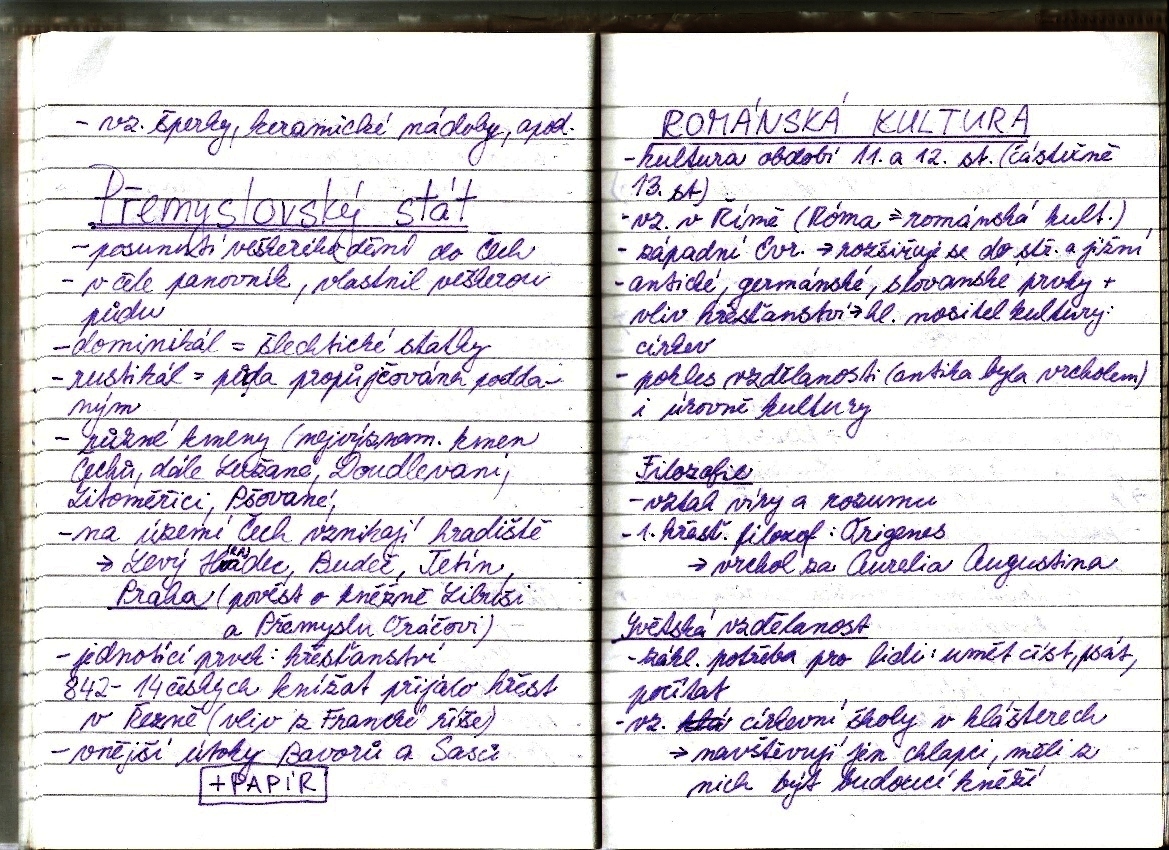 - vz. šperky, keramické nádoby, apod.
Přemyslovský stát
- posunutí veškerého dění do Čech
- v čele panovník, vlastnil veškerou
půdu
- dominikál = šlechtické statky
- rustikál = půda propůjčována podda-
ným
- různé kmeny (nejvýznam. kmen
Čechů, dále Lučané, Doudlevani,
Litoměřici, Pšované,
- na území Čech vznikají hradiště
→ Levý Hradec, Budeč, Tetín,
Praha (pověst o kněžně Libuši
a Přemyslu Oráčovi)
- jednotící prvek: křesťanství
842 - 14 českých knížat přijalo křest
v Řezně (vliv z Francké říše)
- vnější útoky Bavorů a Sasů
+PAPÍR
ROMÁNSKÁ KULTURA
- kultura období 11. a 12. st. (částečně
13. st)
- vz. v Římě (Róma = románská kult.)
- západní Evr. → rozšiřuje se do stř. a jižní
- antické, germánské, slovanské prvky +
vliv křesťanství → hl. nositel kultury:
církev
- pokles vzdělanosti (antika byla vrcholem)
i úrovně kultury
Filozofie
- vztah víry a rozumu
- 1. křest. filozof: Origenes
→ vrchol za Aurelia Augustina
Světská vzdělanost
- zákl. potřeba pro lidi: umět číst, psát,
počítat
- vz. církevní školy v klášterech
→ navštěvují jen chlapci, měli z
nich být budoucí kněží